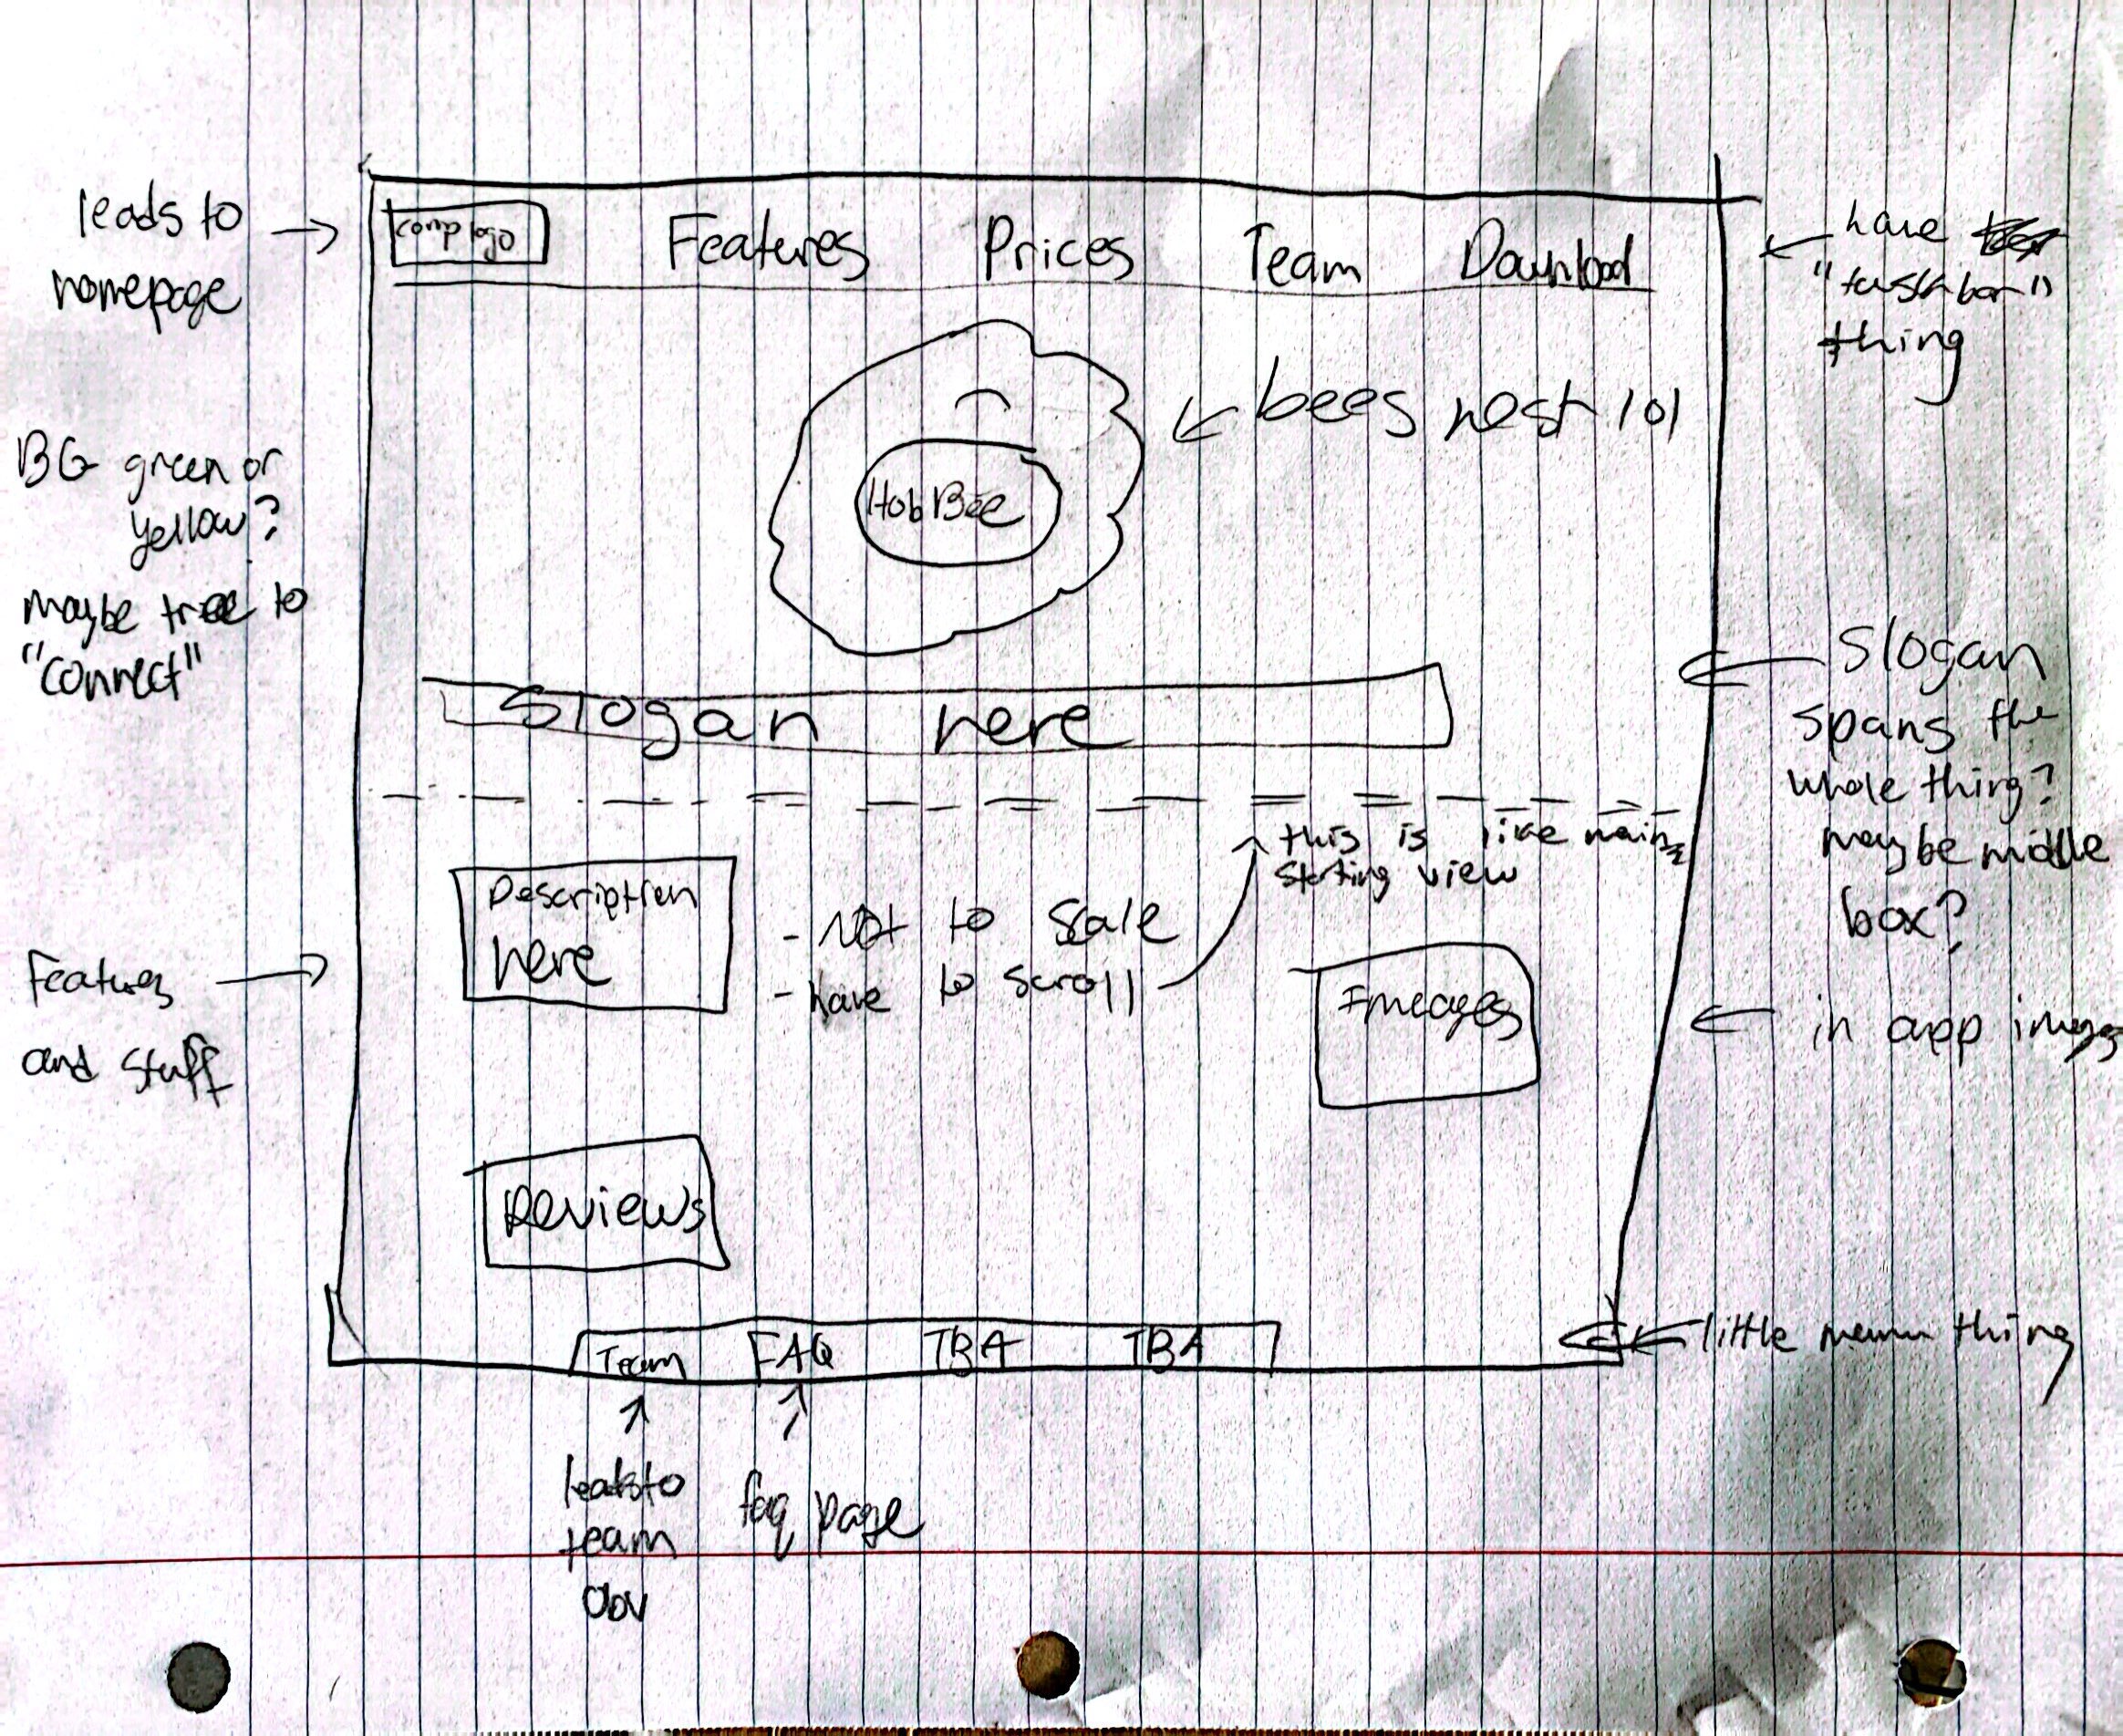 leads to
homepage
comp logo
Features Prices Team Download
have
"task bar"
thing
bees nest lol
HobBee
BG green or
yellow?
maybe tree to
"connect"
Slogan here
Slogan
spans the
whole thing?
maybe middle
box?
this is like main
starting view
Description
here
- Not to scale
- have to scroll
Features
and stuff
Images
in app images
Reviews
Team FAQ TBA TBA
little menu thing
leads to
team
obv
faq page